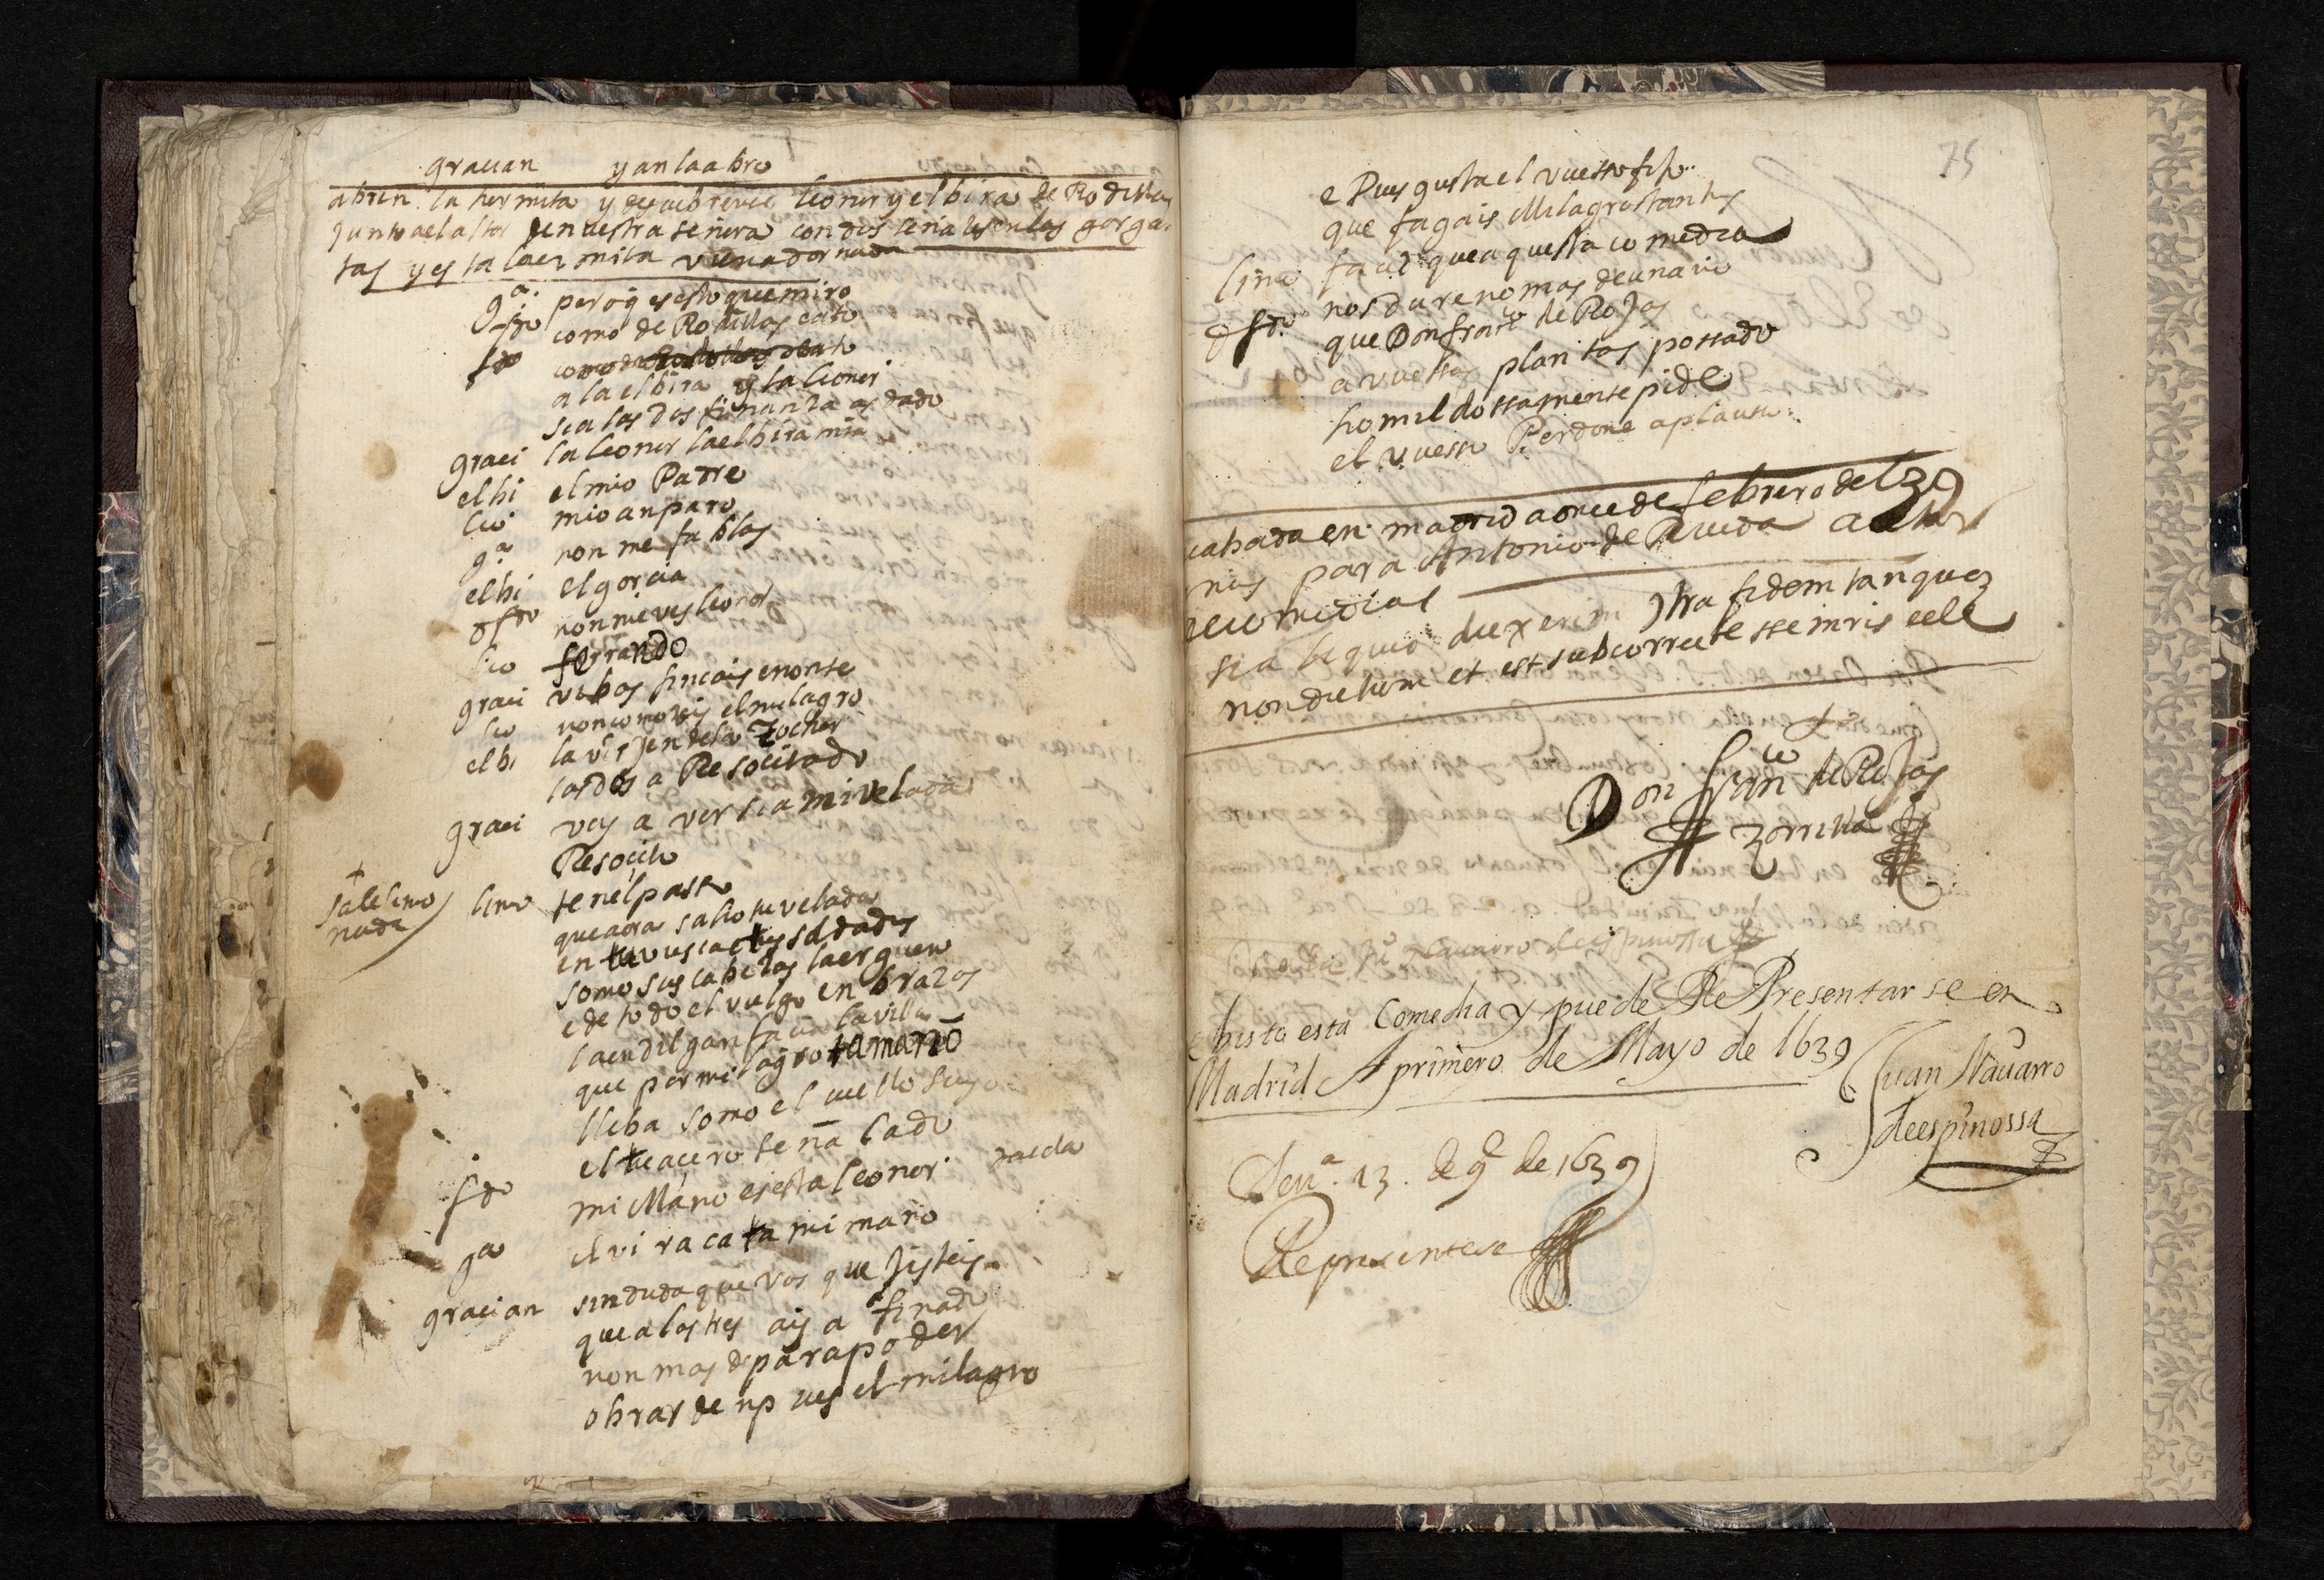 grauan yanlaabro
abren la hermita y descubrense leonor y elbira de Rodillas
junto al altar de nuestra señora con dos señales en las gargan
tas y esta la ermita vien adornada
ga. pero q es esto que miro
fdo como de Rodillas cato
fdo
a la elbira y la leonor
si a las dos finanza as dado
graci la leonor la elbira mia
elbi el mio Padre
leo mio anparo
ga non me fablas
elbi el garcia
dfdo non me ves leonor
leo ferrando
graci vibas fincais enonse
leo non conoceis el milagro
elbi la virjen del a Tocha
las dos a Resocitado
graci voy a ver si a mi velada
Resocito
sale lino
nuda
lino ten el paso
que aora salio tu velada
en tu vusca e tus soldados
somo sus cabezas la erguen
e de todo el vulgo en brazos
la endilgan facia la villa
que por milagro tamaño
lleba somo el cuello suyo
el tu acero señalado
fdo mi Mano es esta leonor
ga elvira cata mi mano
gracian sin duda que vos quejisteis
que a las tres ais a finado
non mas de para poder
obrar denpues el milagro
75
e Pues gusta el vuesso fijo
que fagais Milagros tantos
lino faced que aquesta comedia
nos dure no mas de un año
dfdo. que Don franco de Rojas
a vuestras plantas postrado
homildossamente pide
el vuesso Perdone aplauso
cabada en madrid a once de febrero de 639
nos para Antonio de Rueda autor
de comedias
si a liquid duxerim Jtra fidem tanquam
non dictum et est sub correcte
Don franco de Rojas
zorrilla
e bisto esta Comedia y puede RePresentarse en
Madrid A primero de Mayo de 1639
Juan Nauarro
de espinossa
Vena. 13. de 9e de 1639
Representese